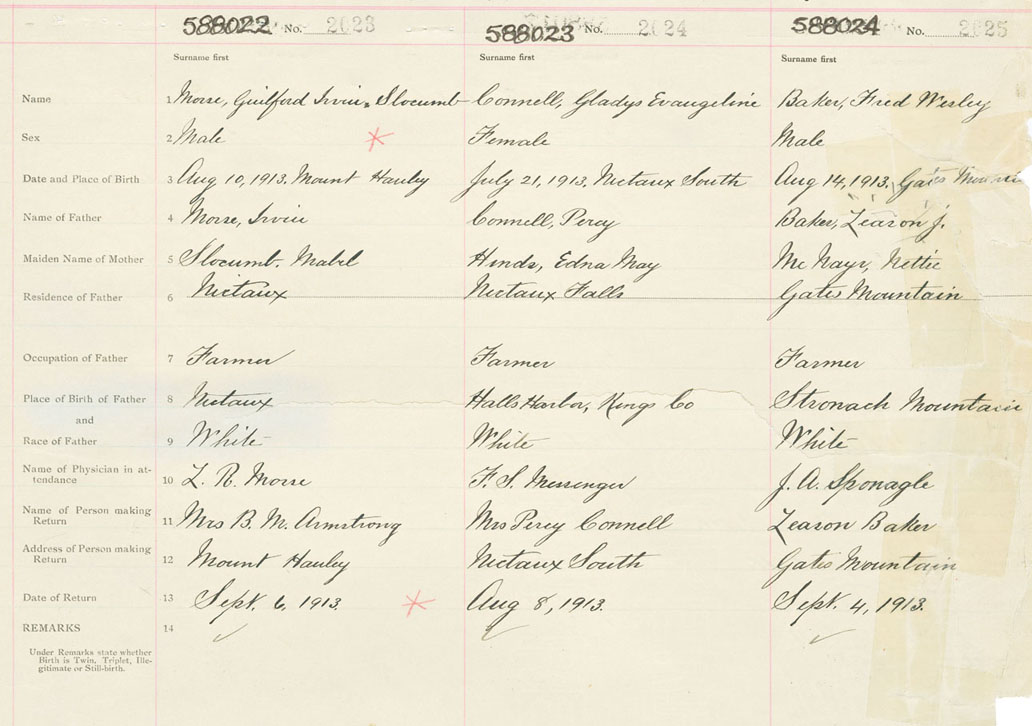 588022 No. 2023 588023 No. 2024 588024 No. 2025
Surname first Surname first Surname first
Name 1 Morse, Guilford Irvin, Slocumb Connell, Gladys Evangeline Baker, Fred Wesley
Sex 2 Male Female Male
Date and Place of Birth 3 Aug 10, 1913. Mount Hanley July 21, 1913. Nictaux South Aug 14, 1913. Gates Mountain
Name of Father 4 Morse, Irvin Connell, Percy Baker, Zeason J.
Maiden Name of Mother 5 Slocumb. Mabel Hinds, Edna May McNayr, Nettie
Residence of Father 6 Nictaux Nictaux Falls Gates Mountain
Occupation of Father 7 Farmer Farmer Farmer
Place of Birth of Father 8 Nictaux Halls Harbor, Kings Co Stronach Mountain
and
Race of Father 9 White White White
Name of Physician in at-
tendance 10 L. R. Morse F. S. Messenger J. A. Sponagle
Name of Person making
Return 11 Mrs B. M. Armstrong Mrs Percy Connell Zeason Baker
Address of Person making
Return 12 Mount Hanley Nictaux South Gates Mountain
Date of Return 13 Sept. 6, 1913. Aug 8, 1913. Sept. 4, 1913.
REMARKS 14
Under Remarks state whether
Birth is Twin, Triplet, Ille-
gitimate or Still-birth.